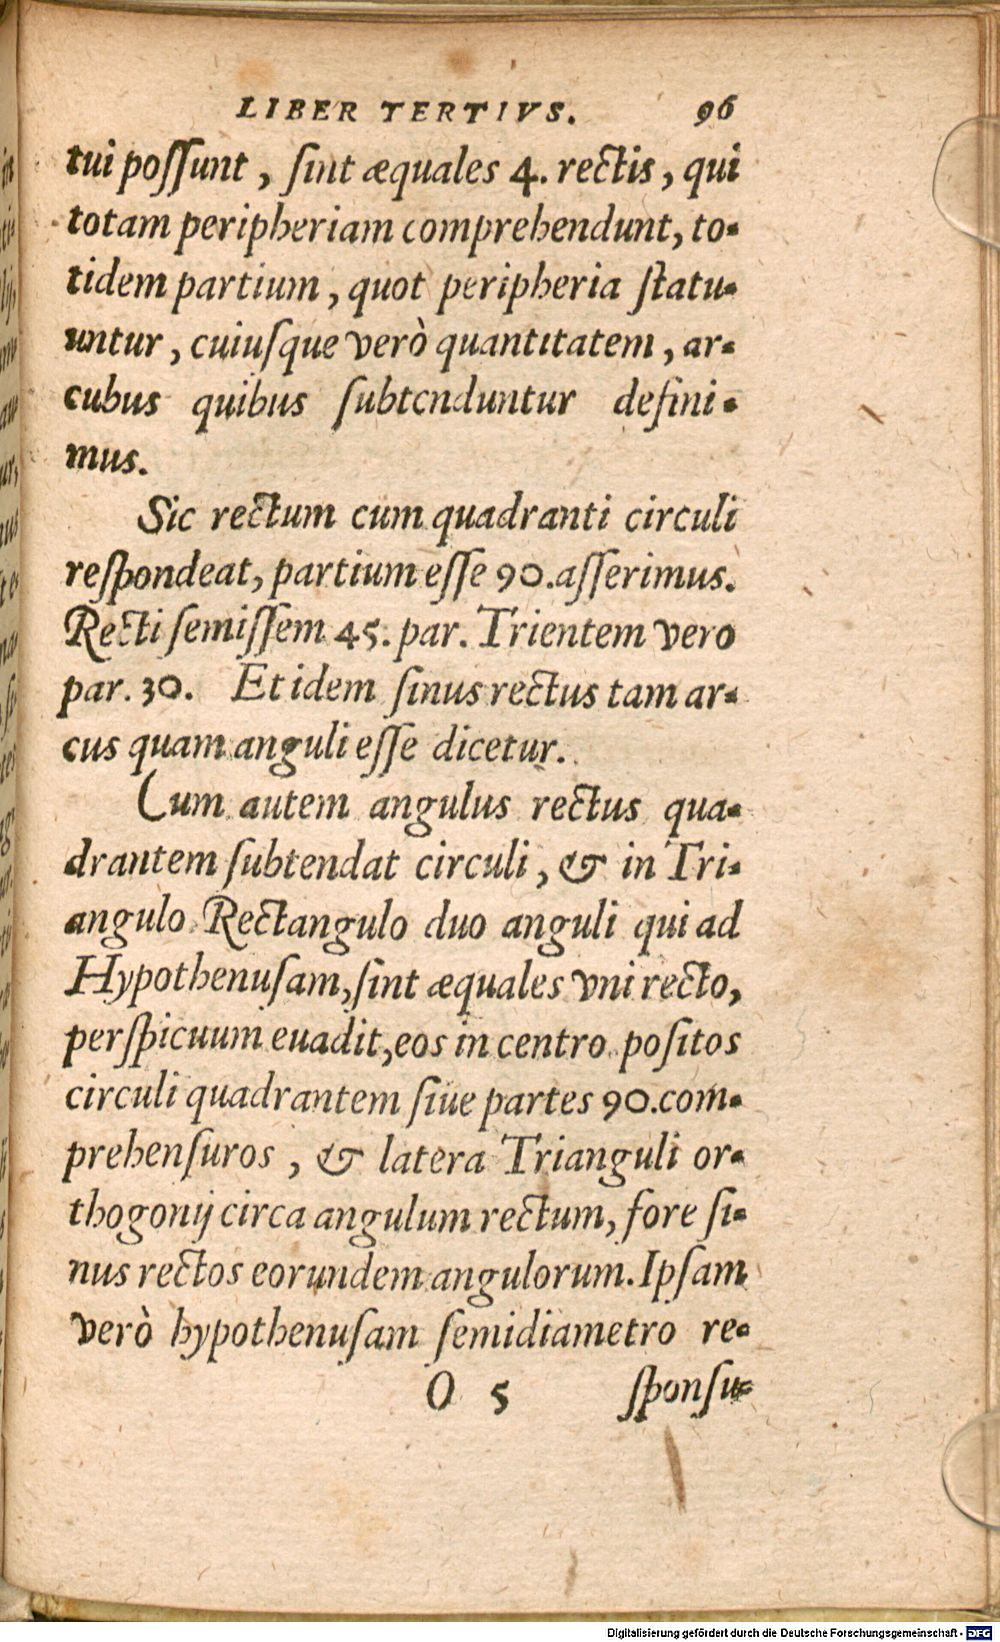 LIBER TERTIVS. 96
tui poſſunt, ſint æquales 4. rectis, qui
totam peripheriam comprehendunt, to-
tidem partium, quot peripheria ſtatu-
untur, cuiuſque verò quantitatem, ar-
cubus quibus ſubtenduntur defini-
mus.
Sic rectum cum quadranti circuli
reſpondeat, partium eſſe 90. aſſerimus.
Recti ſemiſſem 45. par. Trientem vero
par. 30. Et idem ſinus rectus tam ar-
cus quam anguli eſſe dicetur.
Cum autem angulus rectus qua-
drantem ſubtendat circuli, & in Tri-
angulo Rectangulo duo anguli qui ad
Hypothenuſam, ſint æquales vni recto,
perſpicuum euadit, eos in centro poſitos
circuli quadrantem ſiue partes 90. com-
prehenſuros, & latera Trianguli or-
thogonij circa angulum rectum, fore ſi-
nus rectos eorundem angulorum. Ipſam
verò hypothenuſam ſemidiametro re-
O 5 ſponſu-
Digitalisierung gefördert durch die Deutsche Forschungsgemeinschaft - DFG